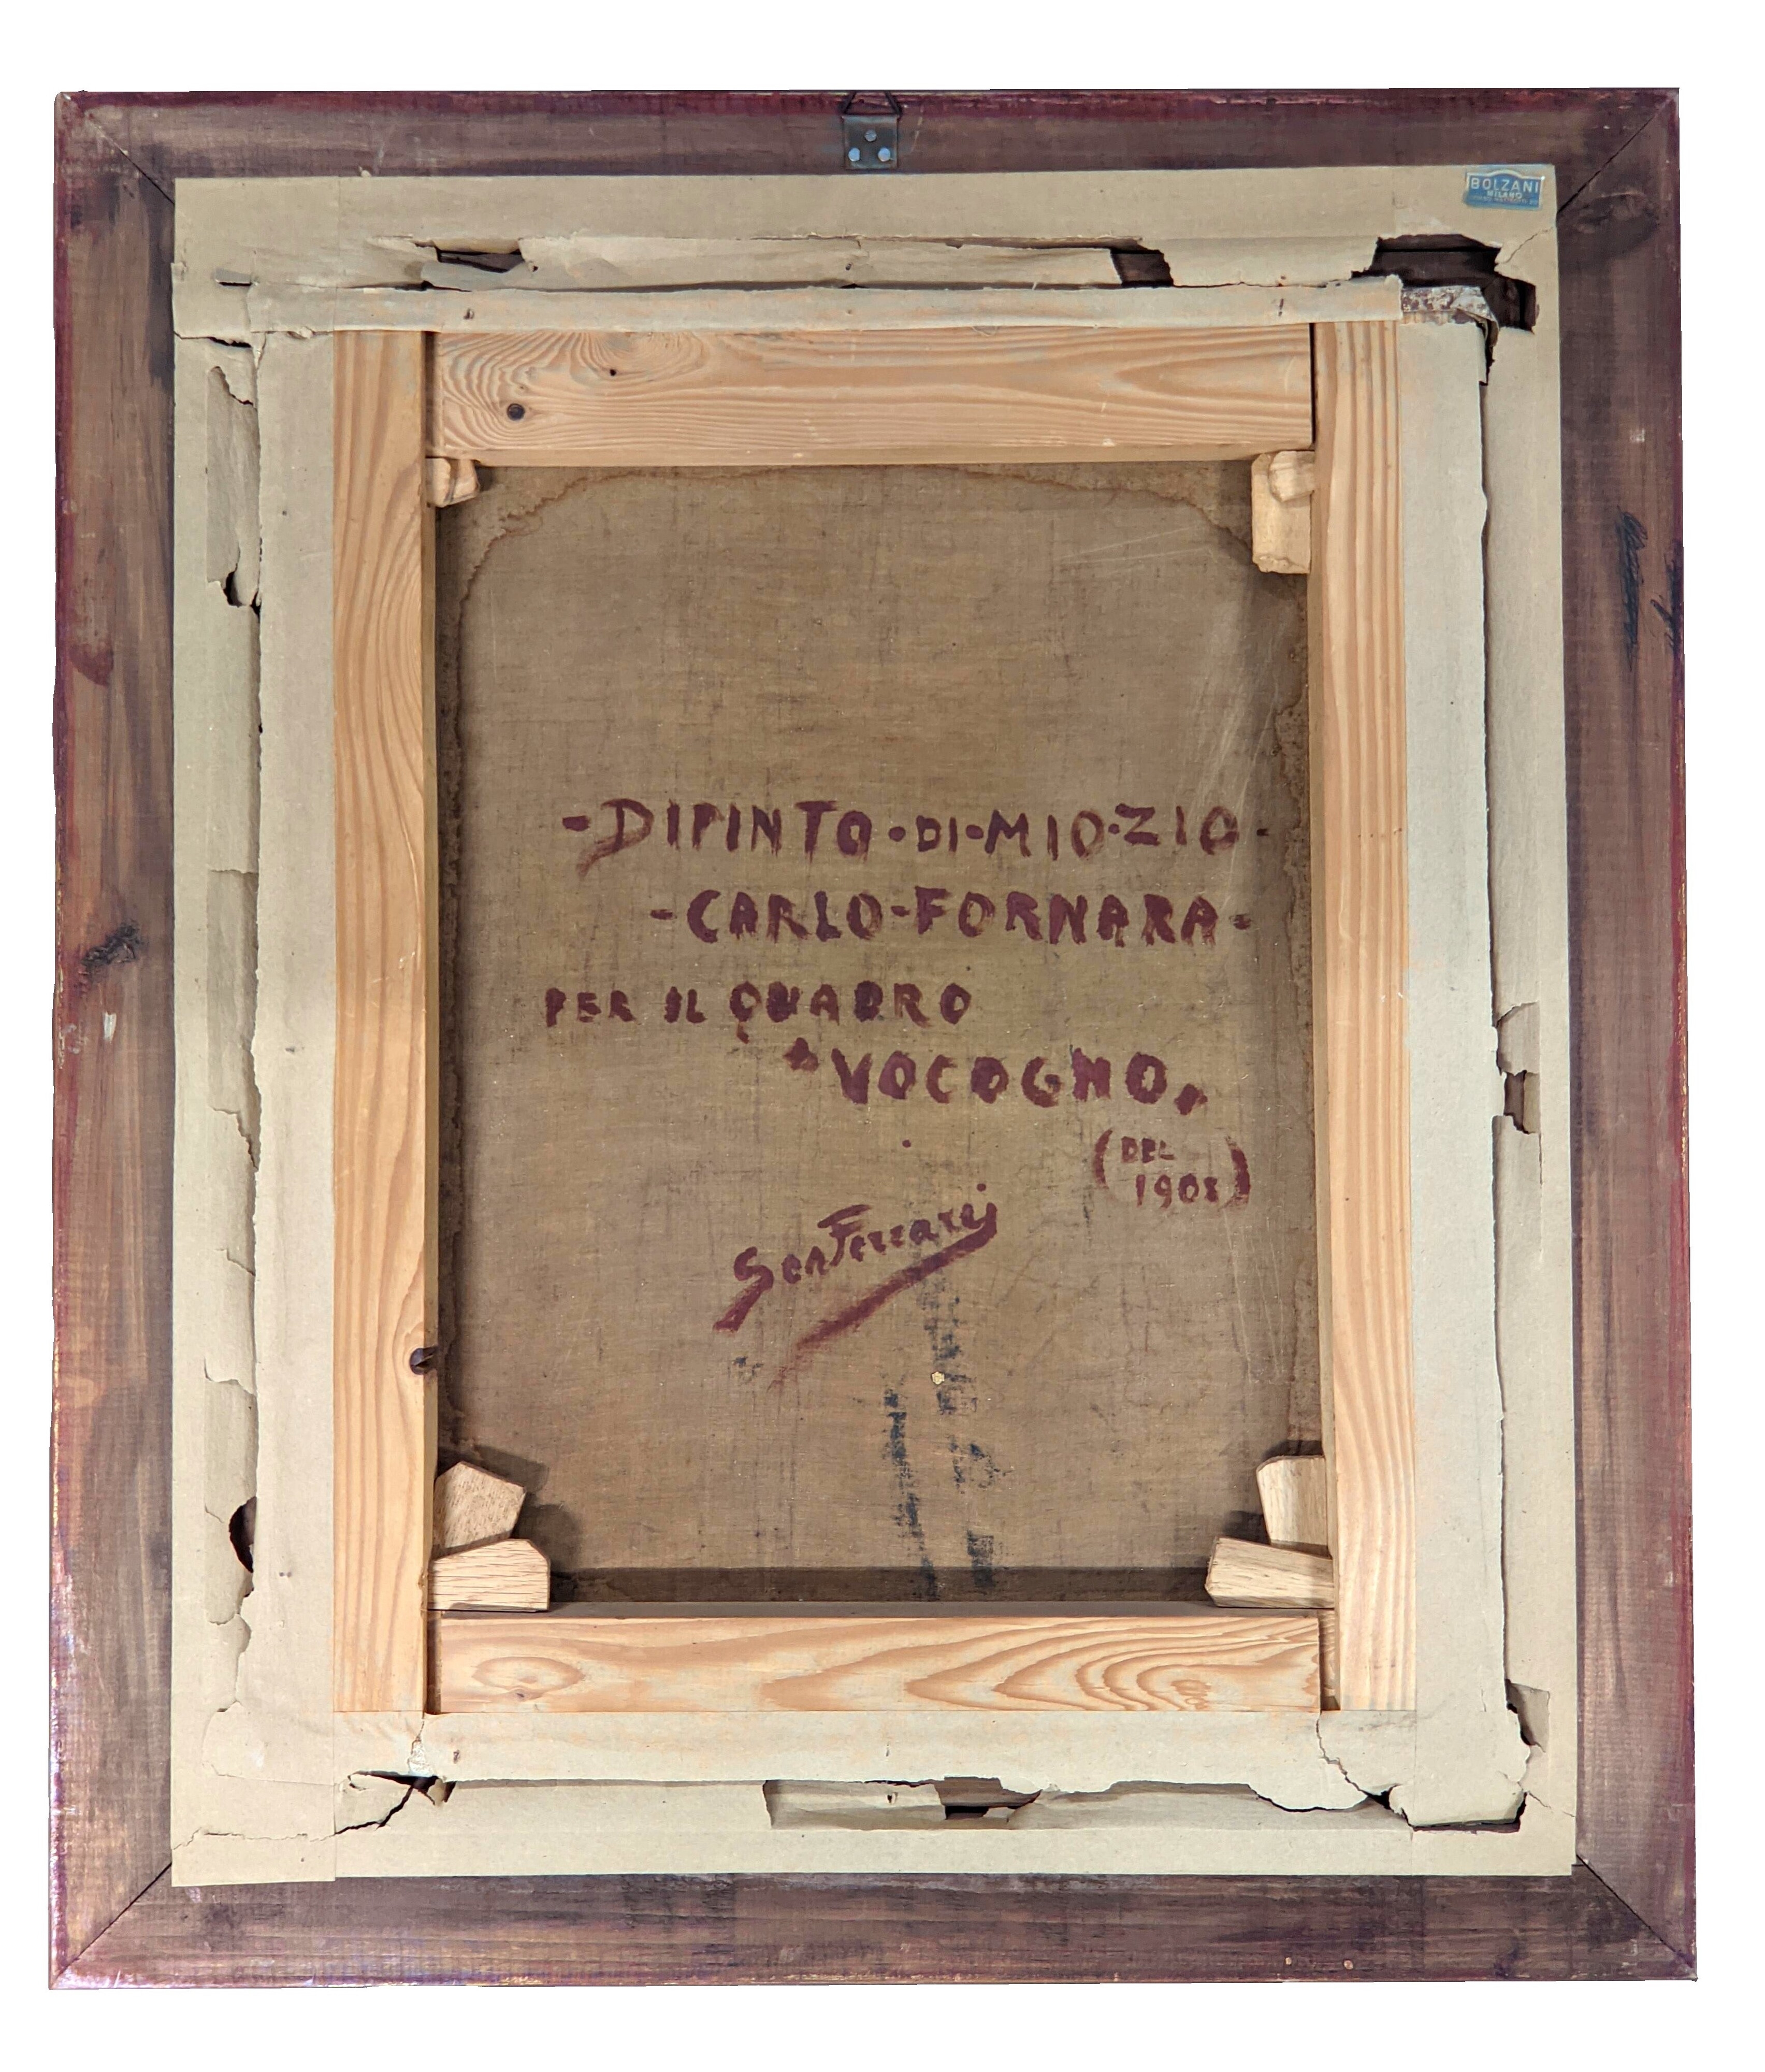 BOLZANI
MILANO
-DIPINTO·DI·MIO·ZIO-
-CARLO-FORNARA-
PER IL QUADRO
"VOCOGNO"
(DEL
1908)